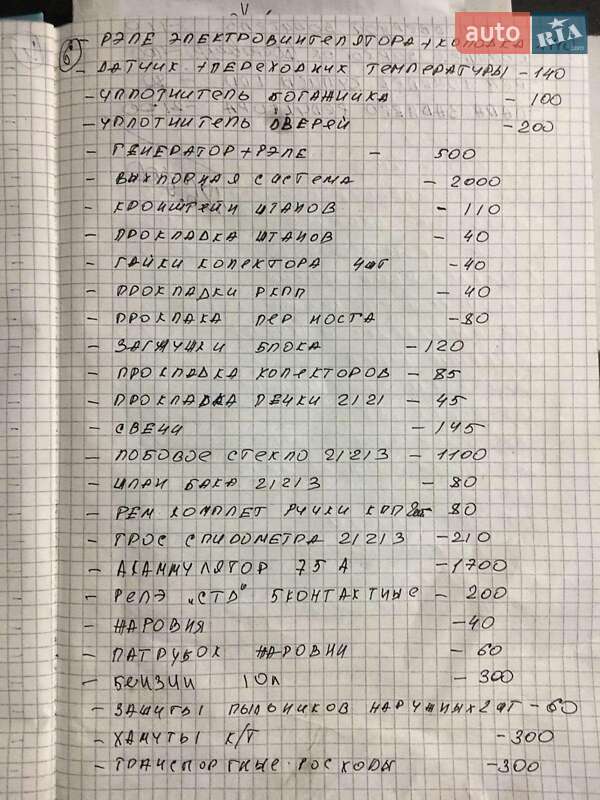 auto RIA.com
6
- РЭЛЕ ЭЛЕКТРОВИНТЕЛЯТОРА + КОЛОДКА
- ДАТЧИК +ПЕРЕХОДНИК ТЕМПЕРАТУРЫ - 140
- УПЛОТНИТЕЛЬ БОГАЖНИКА - 100
- УПЛОТНИТЕЛЬ ДВЕРЕЙ - 200
- ГЕНЕРАТОР + РЭЛЕ - 500
- ВЫХЛОПНАЯ СИСТЕМА - 2000
- КРОНШТЕЙН ШТАНОВ - 110
- ПРОКЛАДКА ШТАНОВ - 40
- ГАЙКИ КОЛЕКТОРА 4шт - 40
- ПРОКЛАДКИ РКПП - 40
- ПРОКЛАКА ПЕР МОСТА - 80
- ЗАГЛУШКИ БЛОКА - 120
- ПРОКЛАДКА КОЛЕКТОРОВ - 85
- ПРОКЛАДКА ПЕЧКИ 2121 - 45
- СВЕЧИ - 145
- ЛОБОВОЕ СТЕКЛО 21213 - 1100
- ШЛАН БАКА 21213 - 80
- РЕМ КОМПЛЕТ РУЧКИ КПП 80
- ТРОС СПИДОМЕТРА 21213 - 210
- АКАММУЛЯТОР 75 А - 1700
- РЕЛЭ "СТВ" 5 КОНТАКТНЫЕ - 200
- ЖАРОВНЯ - 40
- ПАТРУБОК ЖАРОВНИ - 60
- БЕНЗИН 10л - 300
- ЗАШИТЫ ПЫЛЬНИКОВ НАРУЖНЫХ 2 шт - 60
- ХАМУТЫ К/Т - 300
- ТРАНСПОРТНЫЕ РОСХОДЫ - 300